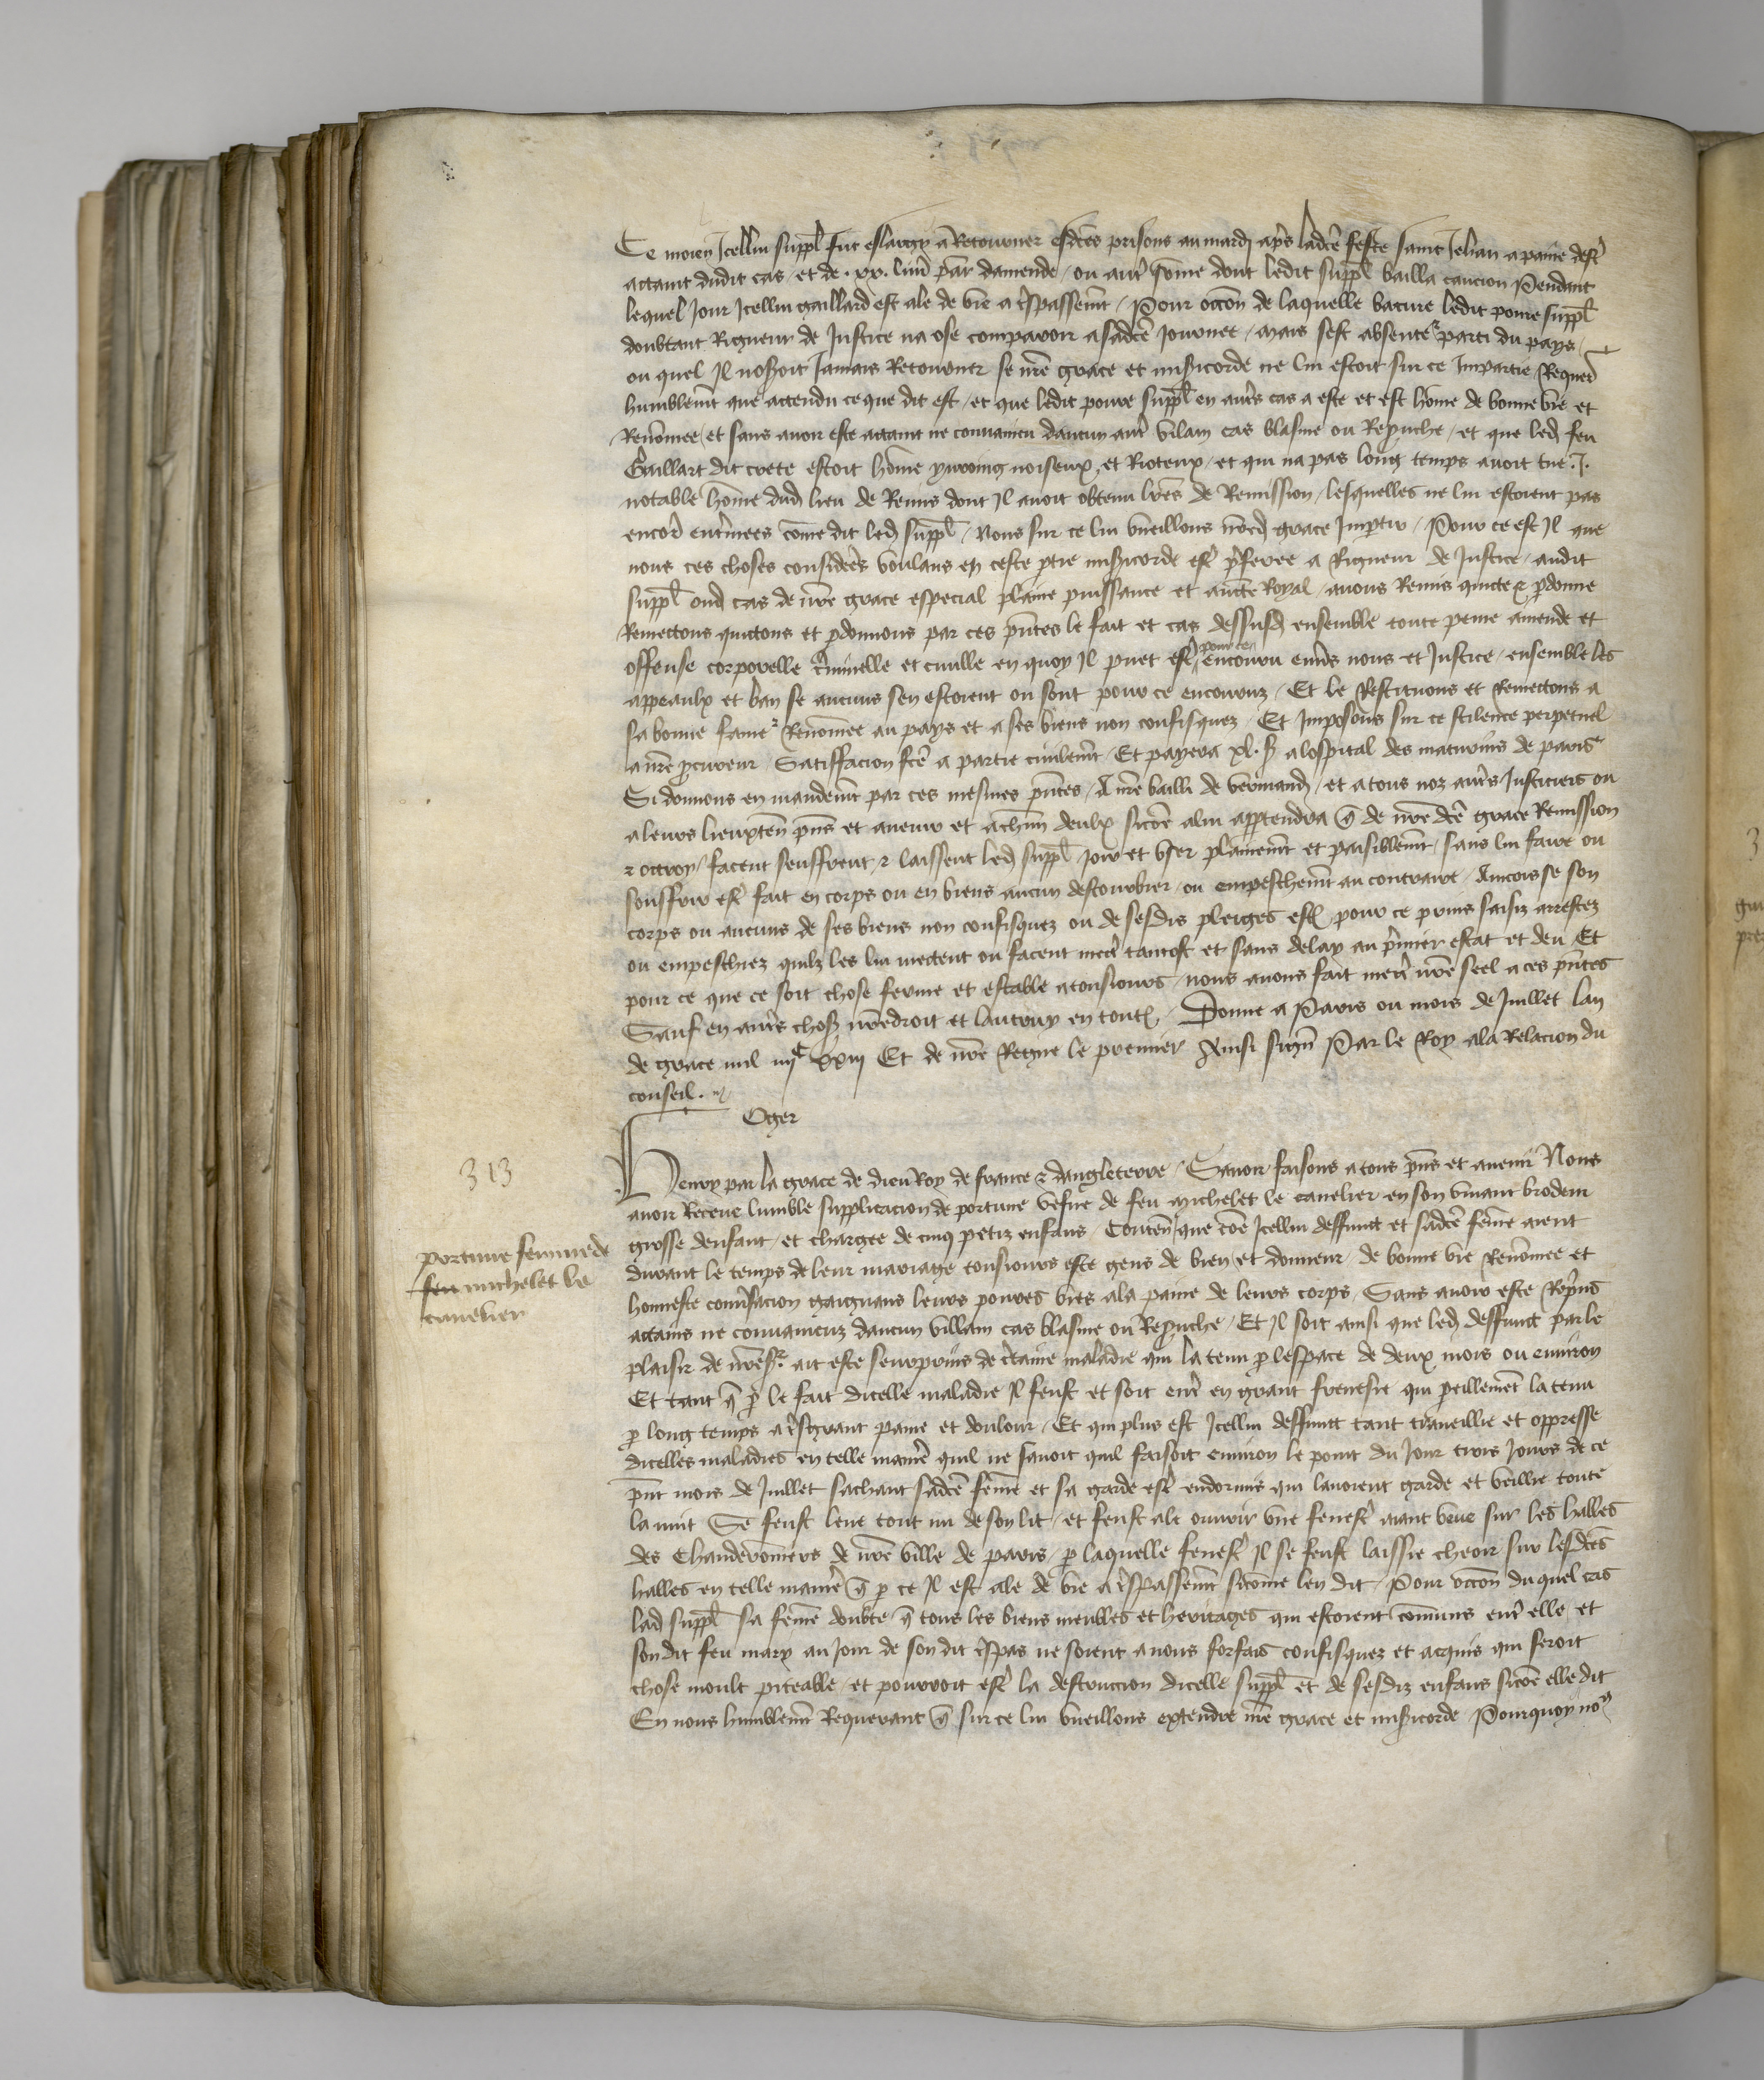 Ce moien Icellui suppl fut eslargy a Retourner esdces prisons au mardj apres ladce feste saint Jehan a paine destre
actaint dudit cas et de .xx. liures par damende ou autre some dont ledit suppl bailla caucion Pendant
lequel Jour Icellui gaillard est ale de vie a trespassemt Pour occon de laquelle bature ledit poure suppl
doubtant Rigueur de Justice na ose comparoir a sadce Journee mais sest absente & parti du pays
ou quel Il noseroit Jamais Retourner se nre grace et misericorde ne lui estoit sur ce Impartie Requerant
humblemt que attendu ce que dit est et que ledit poure suppl en autres cas a este et est home de bonne vie et
Renomee et sans auoir este attaint ne conuaincu daucun autre vilain cas blasme ou Reprouche et que led feu
Gaillart dit crete estoit home yuroing noiseux et Rioteux et qui na pas long temps auoit tue .I.
notable home dud lieu de Reims dont Il auoit obtenu lres de Remission lesquelles ne lui estoient pas
encore enterinees come dit led suppl Nous sur ce lui vueillons nred grace Impartir Pour ce est Il que
nous ces choses considerees voulans en ceste ptie misericorde estre preferee a Rigueur de Justice audit
suppl oud cas de nre grace especial plaine puissance et aucte Royal auons Remis quicte & pdonne
Remectons quictons et pdonnons par ces pntes le fait et cas dessusd ensemble toute peine amende et
offense corporelle criminelle et ciuille en quoy Il puet estre pour ce encouru enuers nous et Justice ensemble les
appeaulx et ban se aucuns sen estoient ou sont pour ce encouruz Et le Restituons et Remectons a
sa bonne fame & Renomee au pays et a ses biens non confisquez Et Imposons sur ce silence perpetuel
a nre pcureur Satisfacion fce a partie ciuilemt Et payera xl. s alospital des maturins de paris
Si donnons en mandemt par ces mesmes pntes A nre bailli de vermand et a tous noz autres Justiciers ou
a leurs lieuxten pns et auenir et a chun deulx sicoe a lui apptendra q de nre dce grace Remission
& octroy facent seuffrent & laissent led suppl Joir et vser plainemt et paisiblemt sans lui faire ou
souffrir estre fait en corps ou en biens aucun destourbier ou empeschemt au contraire Aincois se son
corps ou aucuns de ses biens non confisquez ou de sesdis pleiges estoient pour ce prins saisiz arrestez
ou empeschiez quilz les lui mectent ou facent mectre tantost et sans delay au premier estat et deu Et
pour ce que ce soit chose ferme et estable a tousiours nous auons fait mectre nre seel a ces pntes
Sauf en autres choses nre droit et lautruy en toutes Donne a Paris ou mois de Juillet lan
de grace mil iiijc xxiij Et de nre Regne le premier Ainsi signe Par le Roy a la Relacion du
conseil.
Oger
313
Henry par la grace de dieu Roy de france & dangleterre Sauoir faisons a tous pns et auenir Nous
auoir Receue lumble supplicacion de portune vefue de feu michelet le cauelier en son viuant brodeur
grosse denfant et chargee de cinq petiz enfans Conten que coe Icellui deffunct et sadce feme aient
durant le temps de leur mariage tousiours este gens de bien et donneur de bonne vie Renomee et
honneste conuersacion gaignans leurs poures vies a la paine de leurs corps Sans auoir este Reprins
attains ne conuaincuz daucun villain cas blasme ou Reprouche Et Il soit ainsi que led deffunct par le
plaisir de nres & ait este seurprins de certaine maladie qui la tenu p lespace de deux mois ou enuiron
Et tant q p le fait dicelle maladie Il feust et soit entre en grant frenesie qui pareillement la tenu
p long temps a tresgrant paine et doulour Et qui plus est Icellui deffunct tant traueillie et oppresse
dicelles maladies en telle maniere quil ne sauoit quil faisoit enuiron le point du Jour trois Jours de ce
pnt mois de Juillet sachant sadce feme et sa garde estre endormis qui lauoient garde et veillie toute
la nuit Se feust leue tout nu de son lit et feust ale ouurir vne fenestre aiant veue sur les halles
des Chauderonniers de nre ville de paris p laquelle fenestre Il se feust laissie cheoir sur lesdces
halles en telle maniere q p ce Il est ale de vie a trespassemt sicome len dit Pour occon du quel cas
lad suppl sa feme doubte q tous les biens meubles et heritages qui estoient comuns entre elle et
sondit feu mary au Jour de son dit trespas ne soient a nous forfais confisquez et acquis qui seroit
chose moult piteable et pourroit estre la destruccion dicelle suppl et de sesdiz enfans sicoe elle dit
En nous humblemt Requerant q sur ce lui vueillons extendre nre grace et misericorde Pourquoy nos
portune femme de
feu michelet le
cauelier